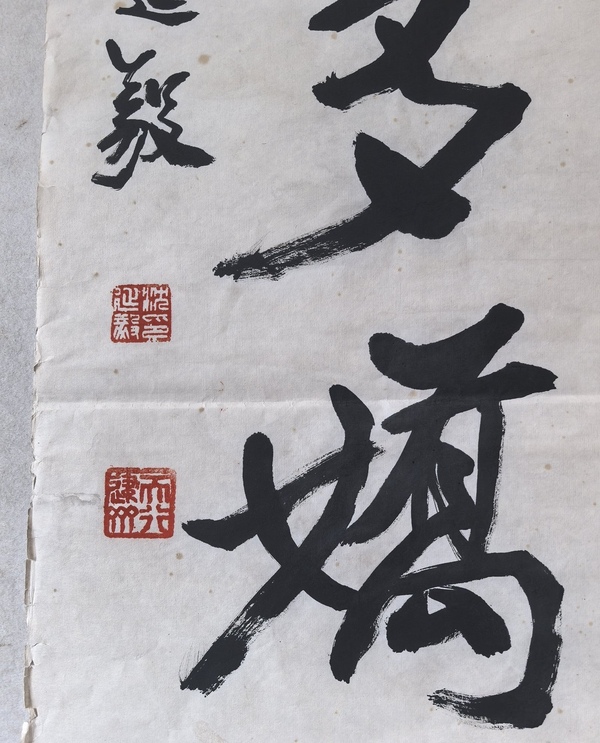 多嬌
延毅
沈延毅印